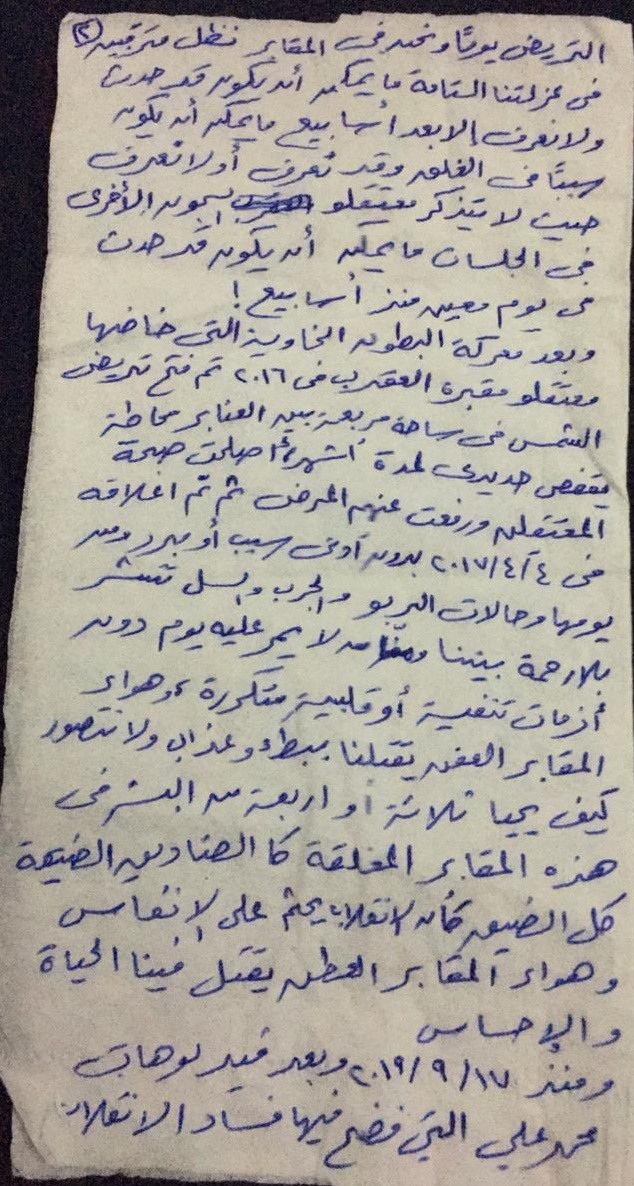 التريض يومًا ونحن فى المقابر نظل مترقبين (٢)
فى عزلتنا التامة ما يمكن أن يكون قد حدث
ولا نعرف إلا بعد أسابيع ما يمكن أن يكون
سببًا فى الغلق وقد نعرف أو لا نعرف
حيث لا يتذكر معتقلو السجون الأخرى
فى الجلسات ما يمكن أن يكون قد حدث
فى يوم معين منذ أسابيع !
وبعد معركة البطون الخاوية التى خاضها
معتقلو مقبرة العقرب فى ٢٠١٦ تم فتح تريض
الشمس فى ساحة مربعة بين العنابر محاطة
بقفص حديدى لمدة أشهر أصلحت صحة
المعتقلين ورفعت عنهم المرض ثم تم اغلاقه
فى ٤/٤/٢٠١٧ بدون أدنى سبب أو مبرر ومن
يومها وحالات الربو والجرب والسل تنتشر
بلا رحمة بيننا ومنا من لا يمر عليه يوم دون
أزمات تنفسية أو قلبية متكررة، وهواء
المقابر العفن يقتلنا ببطء وعذاب ولا نتصور
كيف يحيا ثلاثة أو اربعة من البشر فى
هذه المقابر المغلقة كا الصناديق الضيقة
كل الضيق كأن الانقلاب يجثم على الانفاس
وهواء المقابر العطن يقتل فينا الحياة
والإحساس
ومنذ ١٧/٩/٢٠١٩ وبعد فيديوهات
محمد علي التي فضح فيها فساد الانقلاب